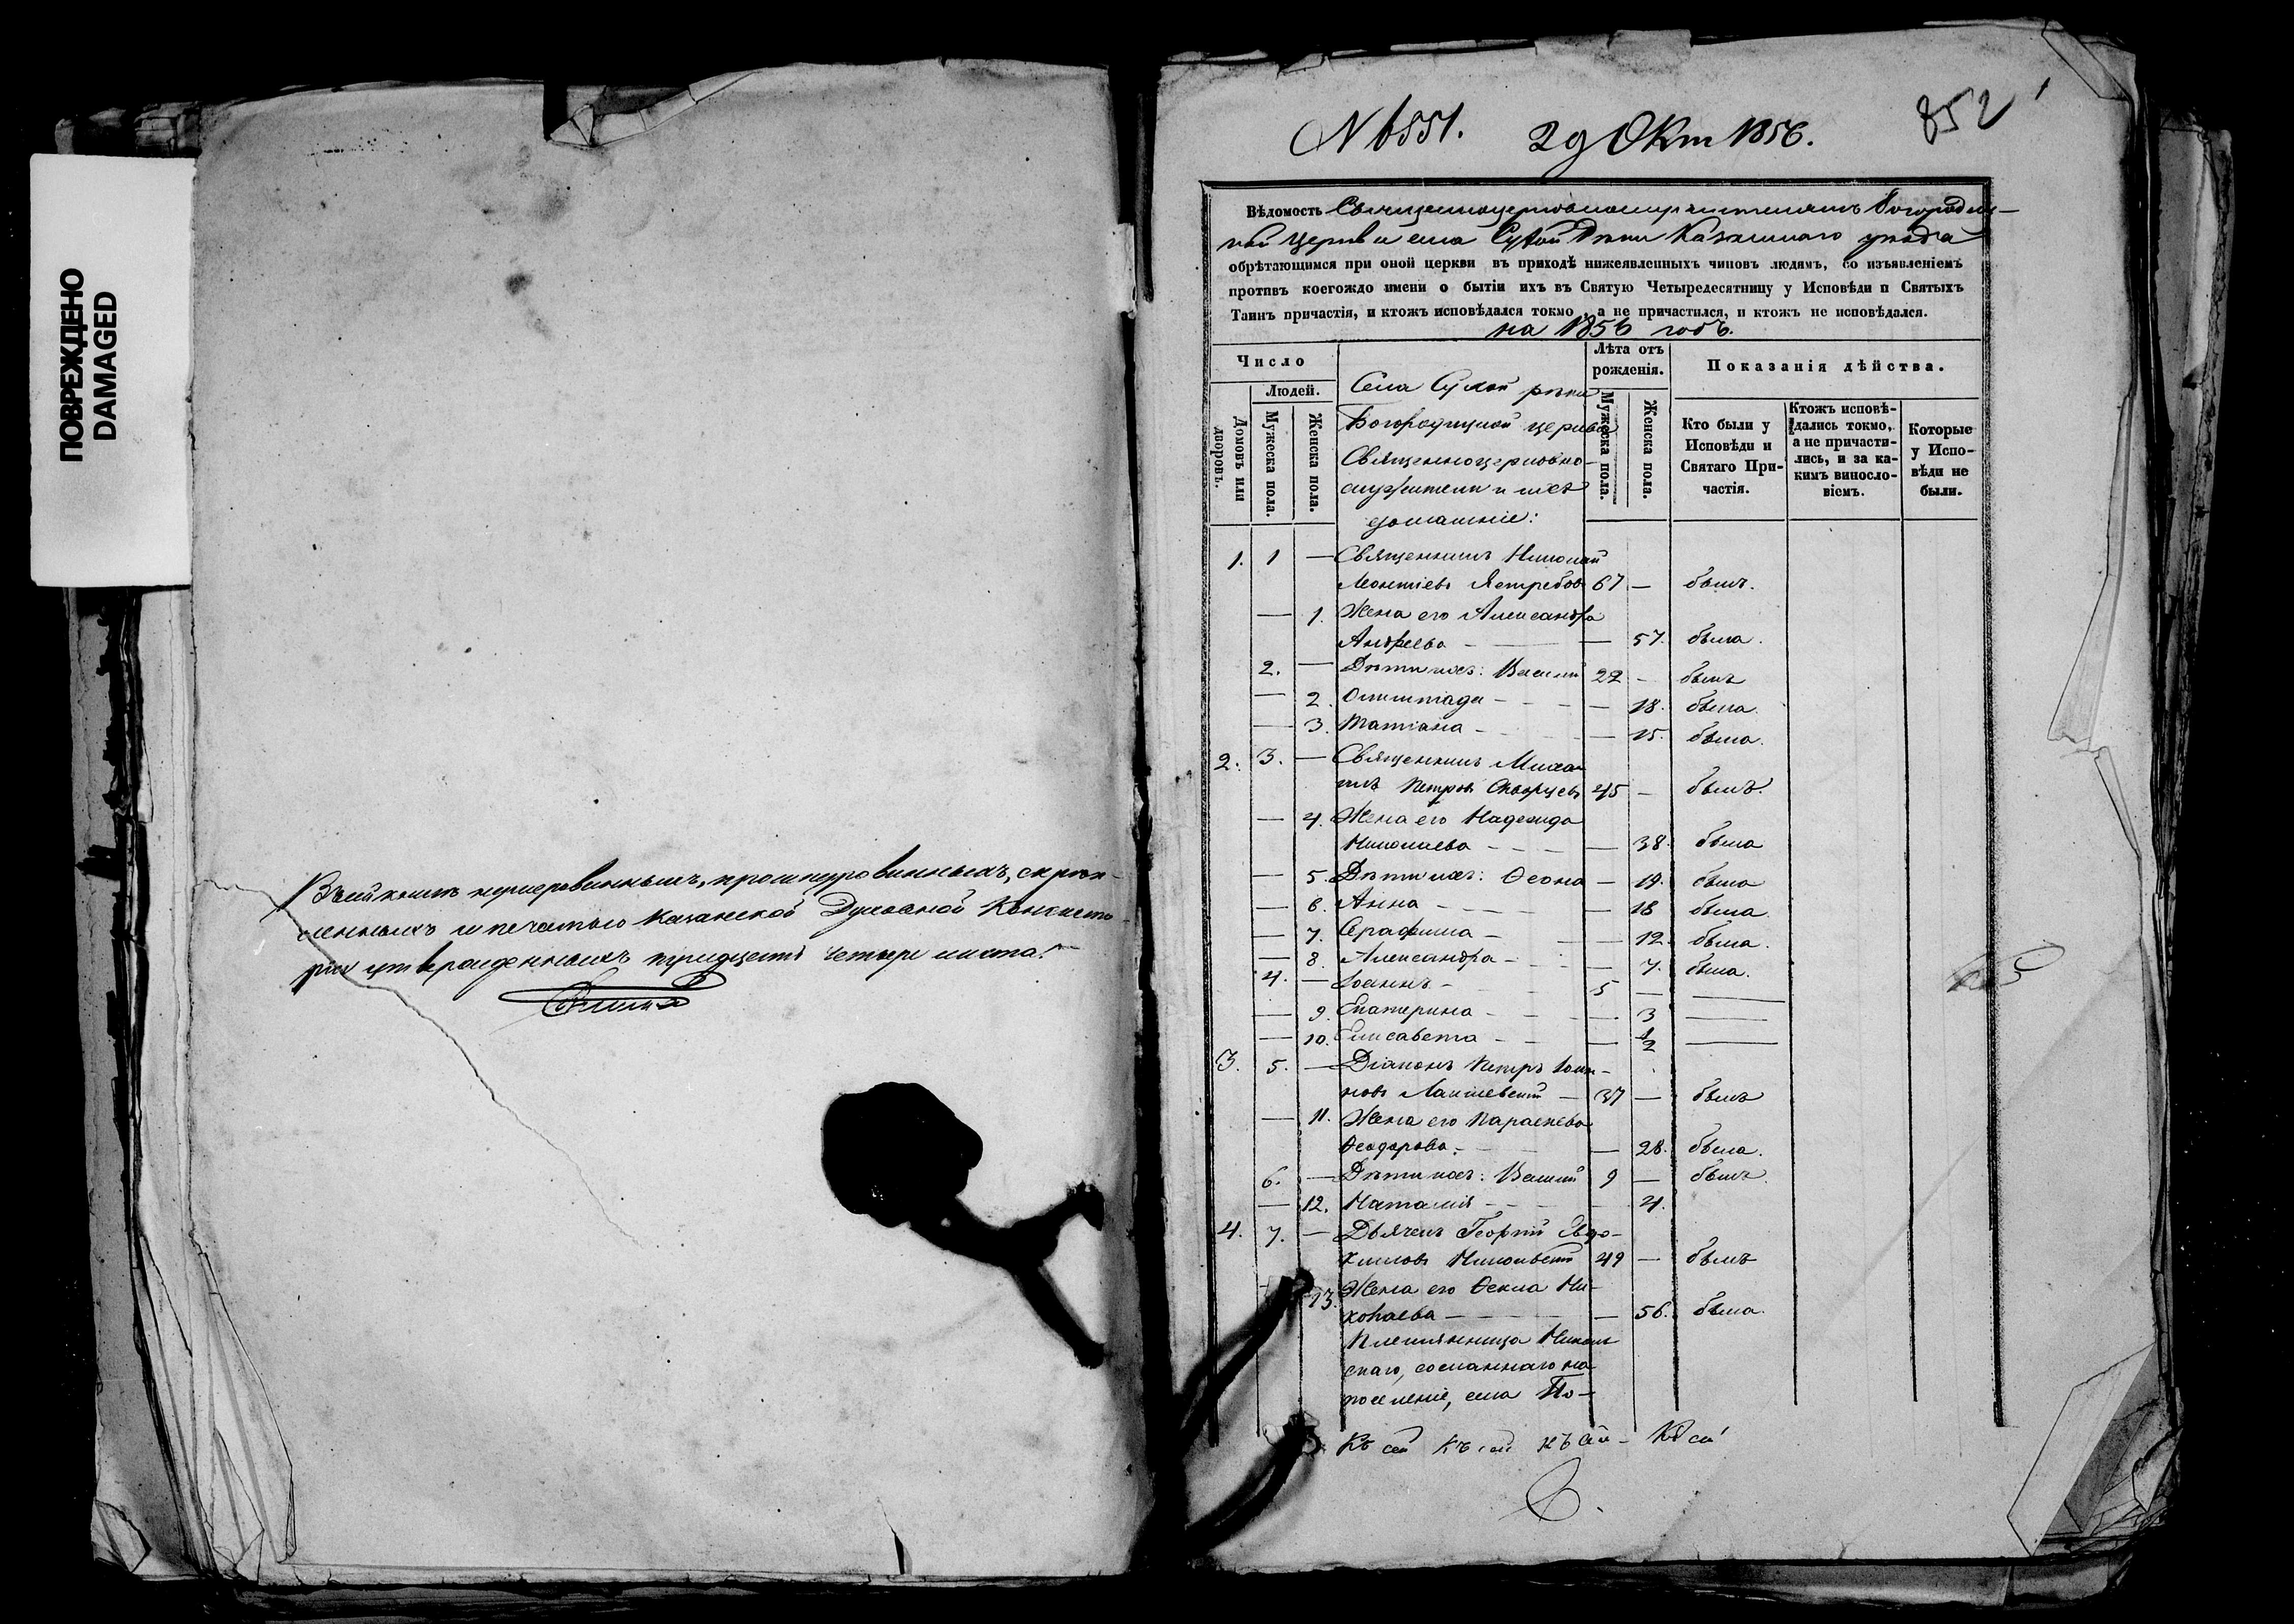 ПОВРЕЖДЕНО
DAMAGED
В сей книге нумерованныхъ, прошнурованныхъ, скреп-
ленныхъ и печатью Казанской Духовной Консисто-
ріи утвержденныхъ тридцать четыре листа.
29 Окт 1856.
852
1
Вѣдомость Священноцерковнослужителямъ Богородиц-
кой церкви села Сухой Рѣки Казанскаго уѣзда
обрѣтающимся при оной церкви въ приходѣ нижеявленныхъ чиновъ людямъ, со изъявленіемъ
противъ коегождо имени о бытіи ихъ въ Святую Четыредесятницу у Исповѣди и Святыхъ
Таинъ причастія, и ктожъ исповѣдался токмо, а не причастился, и ктожъ не исповѣдался.
на 1856 годъ.
Число
Людей.
Домовъ или дворовъ.
Мужеска пола.
Женска пола.
Села Сухой рѣки
Богородицкой церкви
Священноцерковно-
служители и ихъ
домашніе:
Лѣта отъ рожденія.
Мужеска пола.
Женска пола.
Показанія дѣйства.
Кто были у Исповѣди и Святаго Причастія.
Ктожъ исповѣ-
дались токмо,
а не причасти-
лись, и за ка-
кимъ винословіемъ.
Которые у Исповѣди не были.
1. 1 — Священникъ Николай
Леонтіевъ Ястребовъ 67 — былъ.
— 1. Жена его Александра
Андреева — — 57. была.
2. — Дѣти ихъ: Василій 22 — былъ
— 2. Олимпіада — — 18. была.
— 3. Татіана — — 15. была.
2. 3. — Священникъ Миха-
илъ Петровъ Скворцевъ 45 — былъ.
— 4. Жена его Надежда
Николаева — — 38. была
— 5. Дѣти ихъ: Ѳеона — 19. была
— 6. Анна — — 18 была.
— 7. Серафима — — 12. была.
— 8. Александра — — 7. была.
4. — Іоаннъ — 5 — —
— 9. Екатерина — — 3 —
— 10. Елисавета — — 1/2 —
3. 5. — Діаконъ Петръ Іоан-
новъ Лаишевскій — 37 — былъ
— 11. Жена его Параскева
Ѳеодорова. — — 28. была.
6. — Дѣти ихъ: Василій 9 — былъ.
— 12. Наталія — — 4.
4. 7. — Дьячекъ Георгій Евдо-
кимовъ Никольскій 49 — былъ
— 13. Жена его Ѳекла Ми-
хайлова — — 56. была.
Племянница Николь-
скаго, сосланнаго на
поселеніе, села По-
Къ сей къ сей къ сей — Къ сей